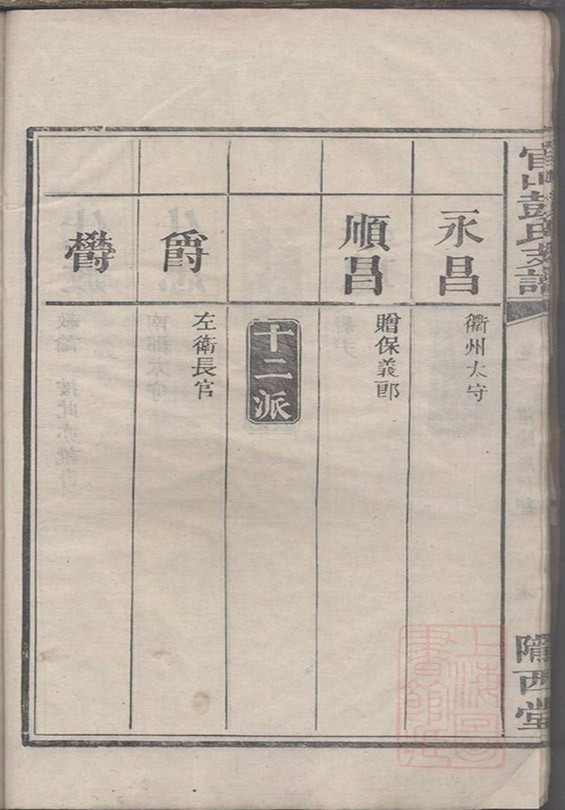 官山彭氏支譜
隴西堂
永昌
衢州太守
順昌
贈保義郎
十二派
爵
左衛長官
欎